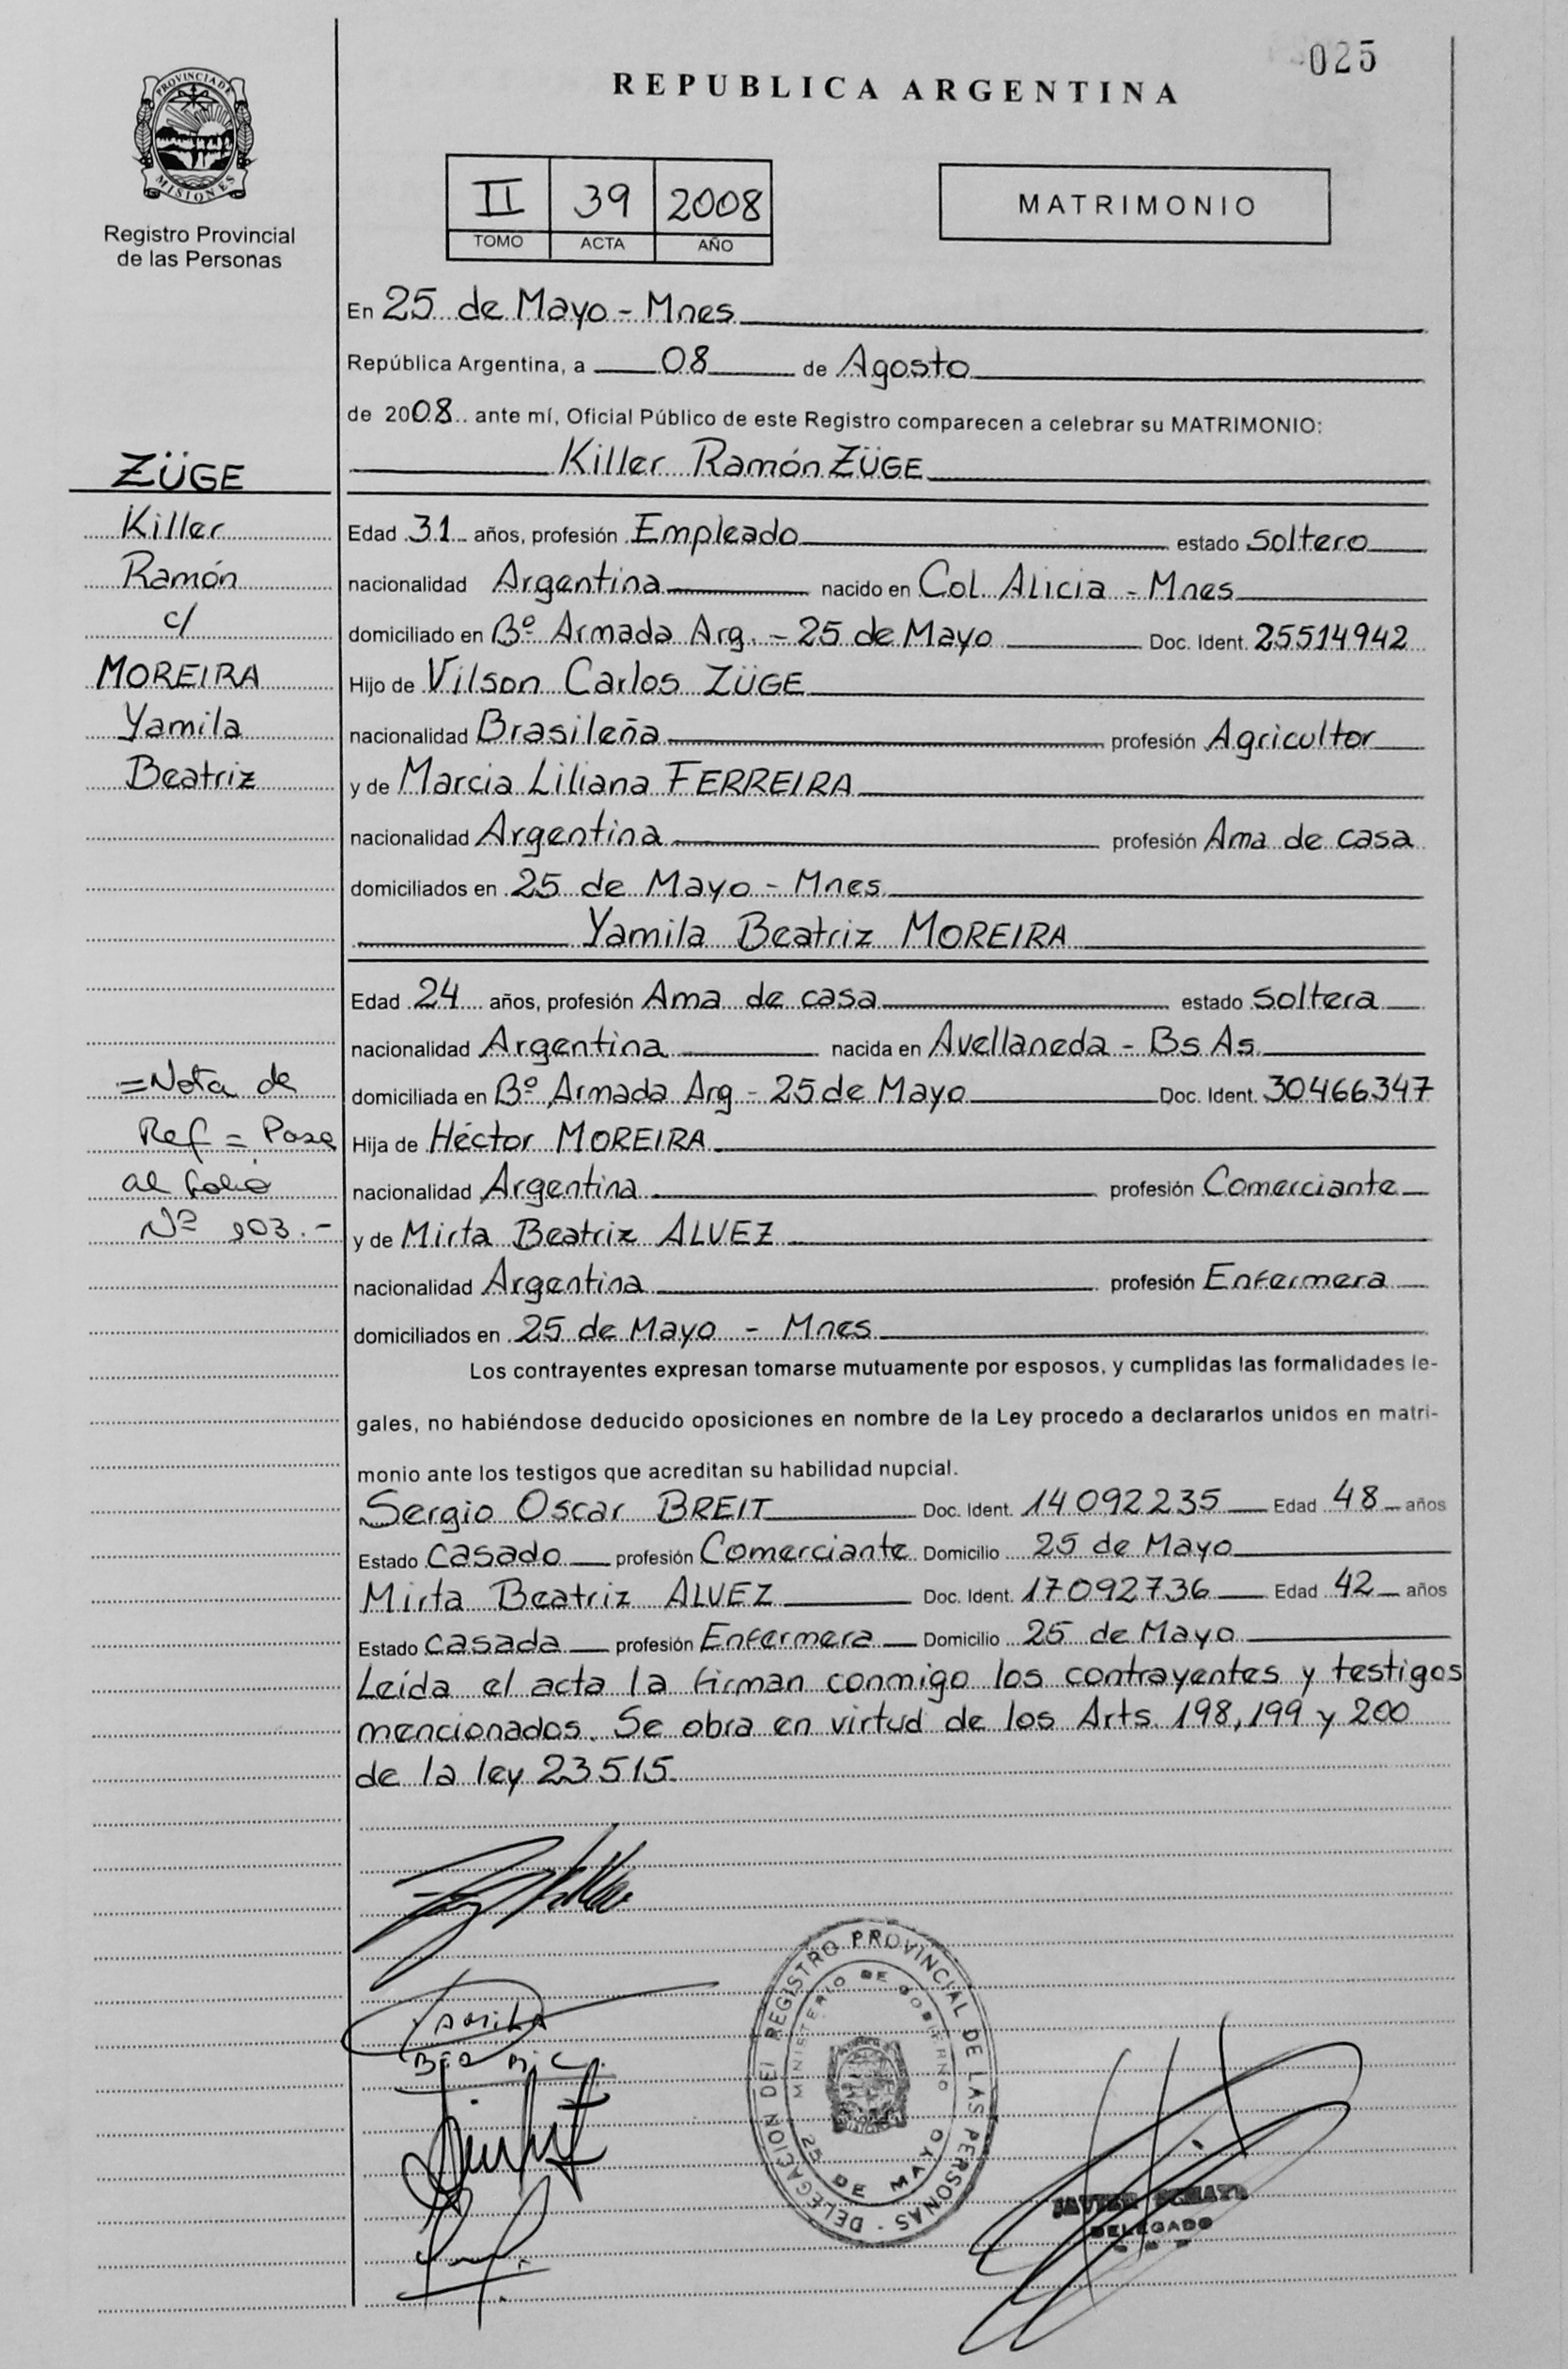 025
REPUBLICA ARGENTINA
PROVINCIA DE
MISIONES
Registro Provincial
de las Personas
II 39 2008
TOMO ACTA AÑO
MATRIMONIO
En 25 de Mayo - Mnes
República Argentina, a 08 de Agosto
de 2008 ante mí, Oficial Público de este Registro comparecen a celebrar su MATRIMONIO:
Killer Ramón ZÜGE
ZÜGE
Killer
Ramón
c/
MOREIRA
Yamila
Beatriz
Edad 31 años, profesión Empleado estado Soltero
nacionalidad Argentina nacido en Col. Alicia - Mnes
domiciliado en Bº Armada Arg. - 25 de Mayo Doc. Ident. 25514942
Hijo de Vilson Carlos ZÜGE
nacionalidad Brasileña profesión Agricultor
y de Marcia Liliana FERREIRA
nacionalidad Argentina profesión Ama de casa
domiciliados en 25 de Mayo - Mnes
Yamila Beatriz MOREIRA
Edad 24 años, profesión Ama de casa estado Soltera
nacionalidad Argentina nacida en Avellaneda - Bs As
domiciliada en Bº Armada Arg - 25 de Mayo Doc. Ident. 30466347
Hija de Héctor MOREIRA
nacionalidad Argentina profesión Comerciante
y de Mirta Beatriz ALVEZ
nacionalidad Argentina profesión Enfermera
domiciliados en 25 de Mayo - Mnes
=Nota de
Ref = Pase
al folio
Nº 103.-
Los contrayentes expresan tomarse mutuamente por esposos, y cumplidas las formalidades le-
gales, no habiéndose deducido oposiciones en nombre de la Ley procedo a declararlos unidos en matri-
monio ante los testigos que acreditan su habilidad nupcial.
Sergio Oscar BREIT Doc. Ident. 14092235 Edad 48 años
Estado Casado profesión Comerciante Domicilio 25 de Mayo
Mirta Beatriz ALVEZ Doc. Ident. 17092736 Edad 42 años
Estado Casada profesión Enfermera Domicilio 25 de Mayo
Leída el acta la firman conmigo los contrayentes y testigos
mencionados. Se obra en virtud de los Arts. 198, 199 y 200
de la ley 23515.
DELEGACION DEL REGISTRO PROVINCIAL DE LAS PERSONAS -
MINISTERIO DE GOBIERNO
25 DE MAYO
JAVIER
DELEGADO